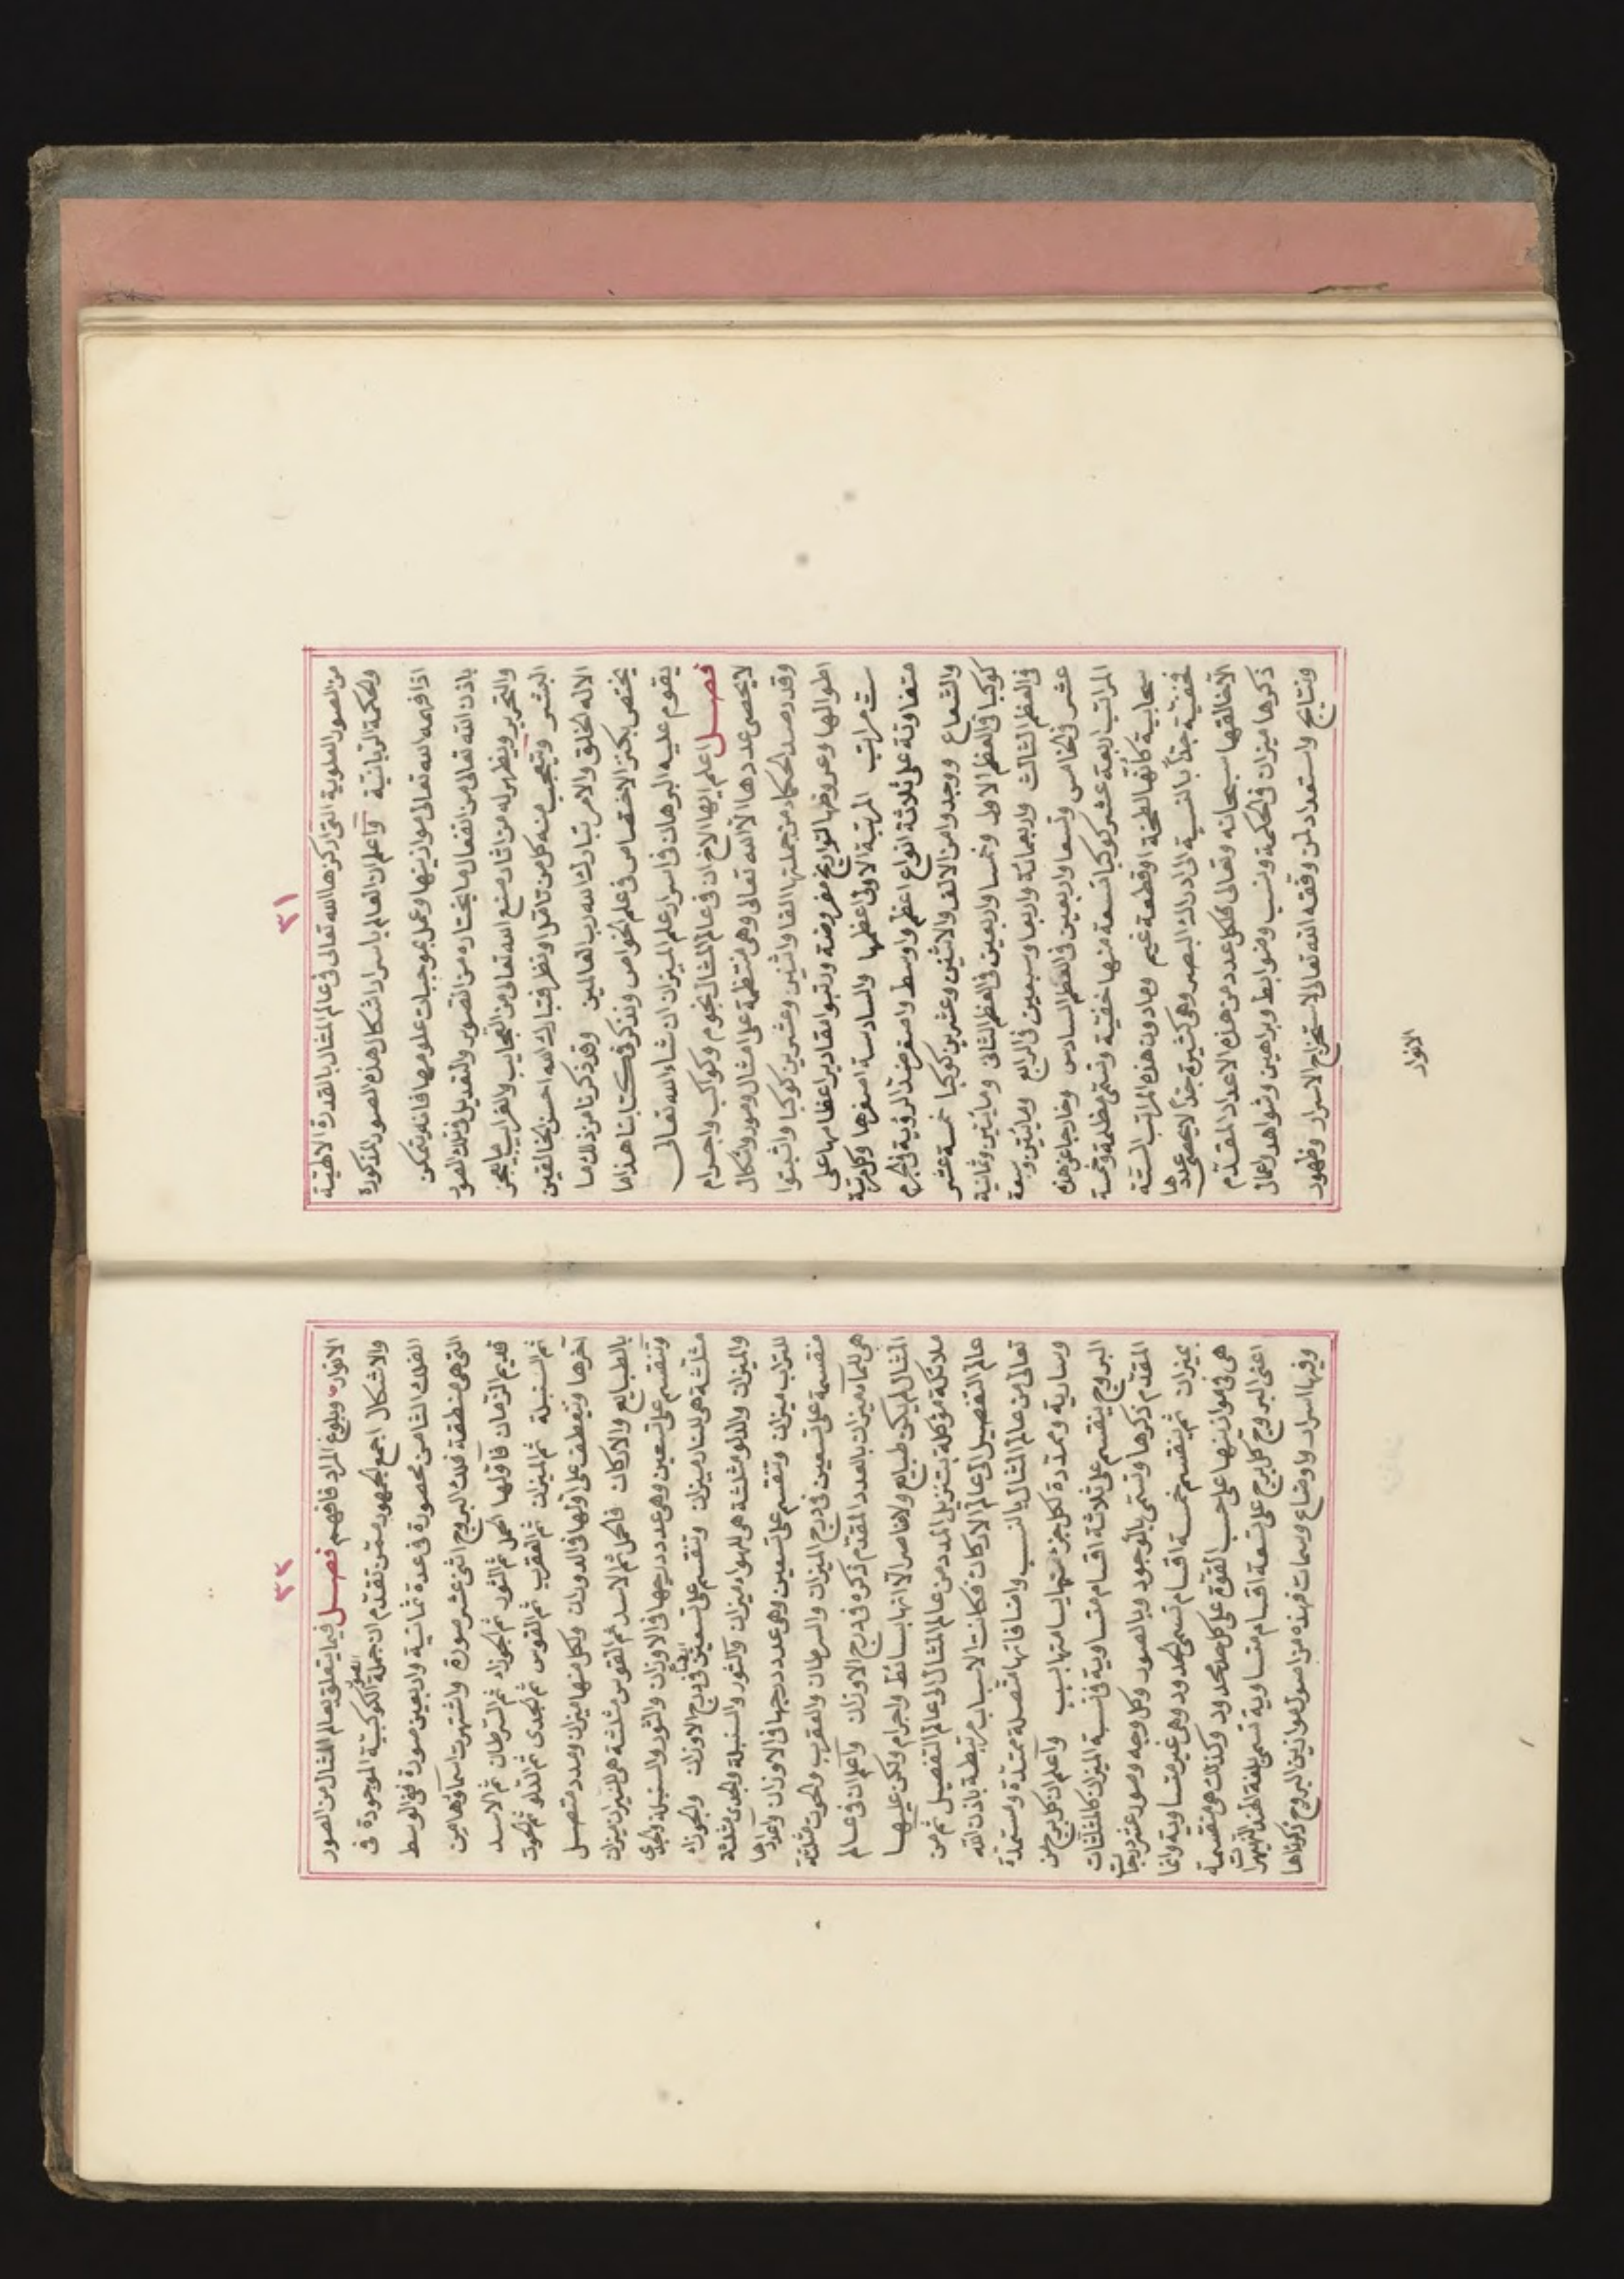 ٣١
من الصور العلوية التى ذكرها الله تعالى فى عالم المثال بالقدرة الالهية
والحكمة الربانية واعلم ان العالم باسرار اشكال هذه الصور المذكورة
اذا فهمه الله تعالى موازينها وعمل بموجبات علومها فانه يتمكن
باذن الله تعالى من انفعال ما يختاره من التصوير والتعديل فى تلك الصور
والتحرير ويظهر له من اثار صنع الله تعالى من العجايب والغرايب ما يعجز
البشر ويتعجب منه كل من تأمل او نظر فتبارك الله احسن الخالقين
الا له الخلق والامر تبارك الله رب العالمين وقد ذكرنا من ذلك ما
يختص بكنز الاختصاص فى علم الخواص ونذكر فى كتابنا هذا ما
يقوم عليه البرهان فى اسرار علم الميزان ان شاء الله تعالى
فصل اعلم ايها الاخ ان فى عالم المثال نجوم وكواكب واجرام
لا يحصى عددها الا الله تعالى وهى منتظمة على امثال وصور واشكال
وقد رصد الحكماء من جملتها الفا واثنين وعشرين كوكبا واثبتوا
اطوالها وعروضها لتواريخ مفروضة ورتبوا مقادير اعظامها على
ست مراتب المرتبة الاولى اعظمها والسادسة اصغرها وكل مرتبة
متفاوتة على ثلاثة انواع اعظم واوسط واصغر ضد الرؤية فى الجرم
والشعاع ووجدوا من الالف والاثنين وعشرين كوكبا خمسة عشر
كوكبا فى العظم الاول وخمسا واربعين فى العظم الثانى ومايتين وثمانية
فى العظم الثالث واربعمائة واربعا وسبعين فى الرابع ومايتين وسبعة
عشر فى الخامس وتسعا واربعين فى العظم السادس وخارجا عن هذه
المراتب اربعة عشر كوكبا تسعة منها خفية وتسمى مظلمة وخمسة
سحابية كأنها لطخة او قطعة غيم وما دون هذه المراتب الستة
فخفية جدا بالنسبة الى ادراك البصر وهى كثيرة جدا لا يحصى عددها
الا خالقها سبحانه وتعالى فلكل عدد من هذه الاعداد المقدم
ذكرها ميزان فى الحكمة ونسب وضوابط وبراهين وشواهد واعمال
ونتايج واستعداد لمن وفقه الله تعالى لاستخراج الاسرار وظهور
الانوار
٣٢
الانوار وبلوغ المراد فافهم فصل فيما يتعلق بعالم المثال من الصور
والاشكال اجمع الجمهور ممن تقدم ان جملة الصور الكوكبية الموجودة فى
الفلك الثامن محصورة فى عدة ثمانية واربعين صورة فى الوسط
التى هى منطقة فلك البروج اثنى عشر صورة واشتهرت اسماؤها من
قديم الزمان فاولها الحمل ثم الثور ثم الجوزاء ثم السرطان ثم الاسد
ثم السنبلة ثم الميزان ثم العقرب ثم القوس ثم الجدى ثم الدلو ثم الحوت
آخرها وتنعطف على اولها فى الدوران ولكل منها ميزان ومدد متصل
بالطبايع والاركان فالحمل ثم الاسد ثم القوس مثلثة هى للنيران ميزان
وتنقسم على تسعين وهى عدد درجها فى الاوزان والثور والسنبلة والجدى
مثلثة هى للنار ميزان وتنقسم على تسعين ايضا فى درج الاوزان والجوزاء
والميزان والدلو مثلثة هى للهواء ميزان والثور والسنبلة والجدى مثلثة
للتراب ميزان وتنقسم على تسعين وهى عدد درجها فى الاوزان واعدادها
منقسمة على تسعين فى درج الميزان والسرطان والعقرب والحوت مثلثة
هى للماء ميزان بالعدد المقدم ذكره فى درج الاوزان واعلم ان فى عالم
المثال لم يكن طبايع ولا عناصر الا انها بسائط واجرام ولكن عليها
ملائكة مؤكلة بتنزيل المدد من عالم المثال الى عالم التفصيل ثم من
عالم التفصيل الى عالم الاركان فكانت الاسباب مرتبطة باذن الله
تعالى من عالم المثال بالنسب واضافاتها متصلة ممتدة ومستمدة
وسارية وممدة لكل جزئياتها بسبب واعلم ان كل برج من
البروج ينقسم على ثلاثة اقسام متساوية فى نسبة الميزان كالمثلثات
المقدم ذكرها وتسمى بالوجود وبالصور وكل وجه وصور عشر درجات
بميزان ثم ينقسم خمسة اقسام تسمى الحدود وهى غير متساوية وانما
هى فى موازينها على حسب القوة على كل محدود وكذلك هى منقسمة
اعنى البروج كل برج على تسعة اقسام متساوية تسمى بلغة الهند النهبرات
وفيها اسرار واوضاع وسمات فهذه من اصول موازين البروج ذكرناها